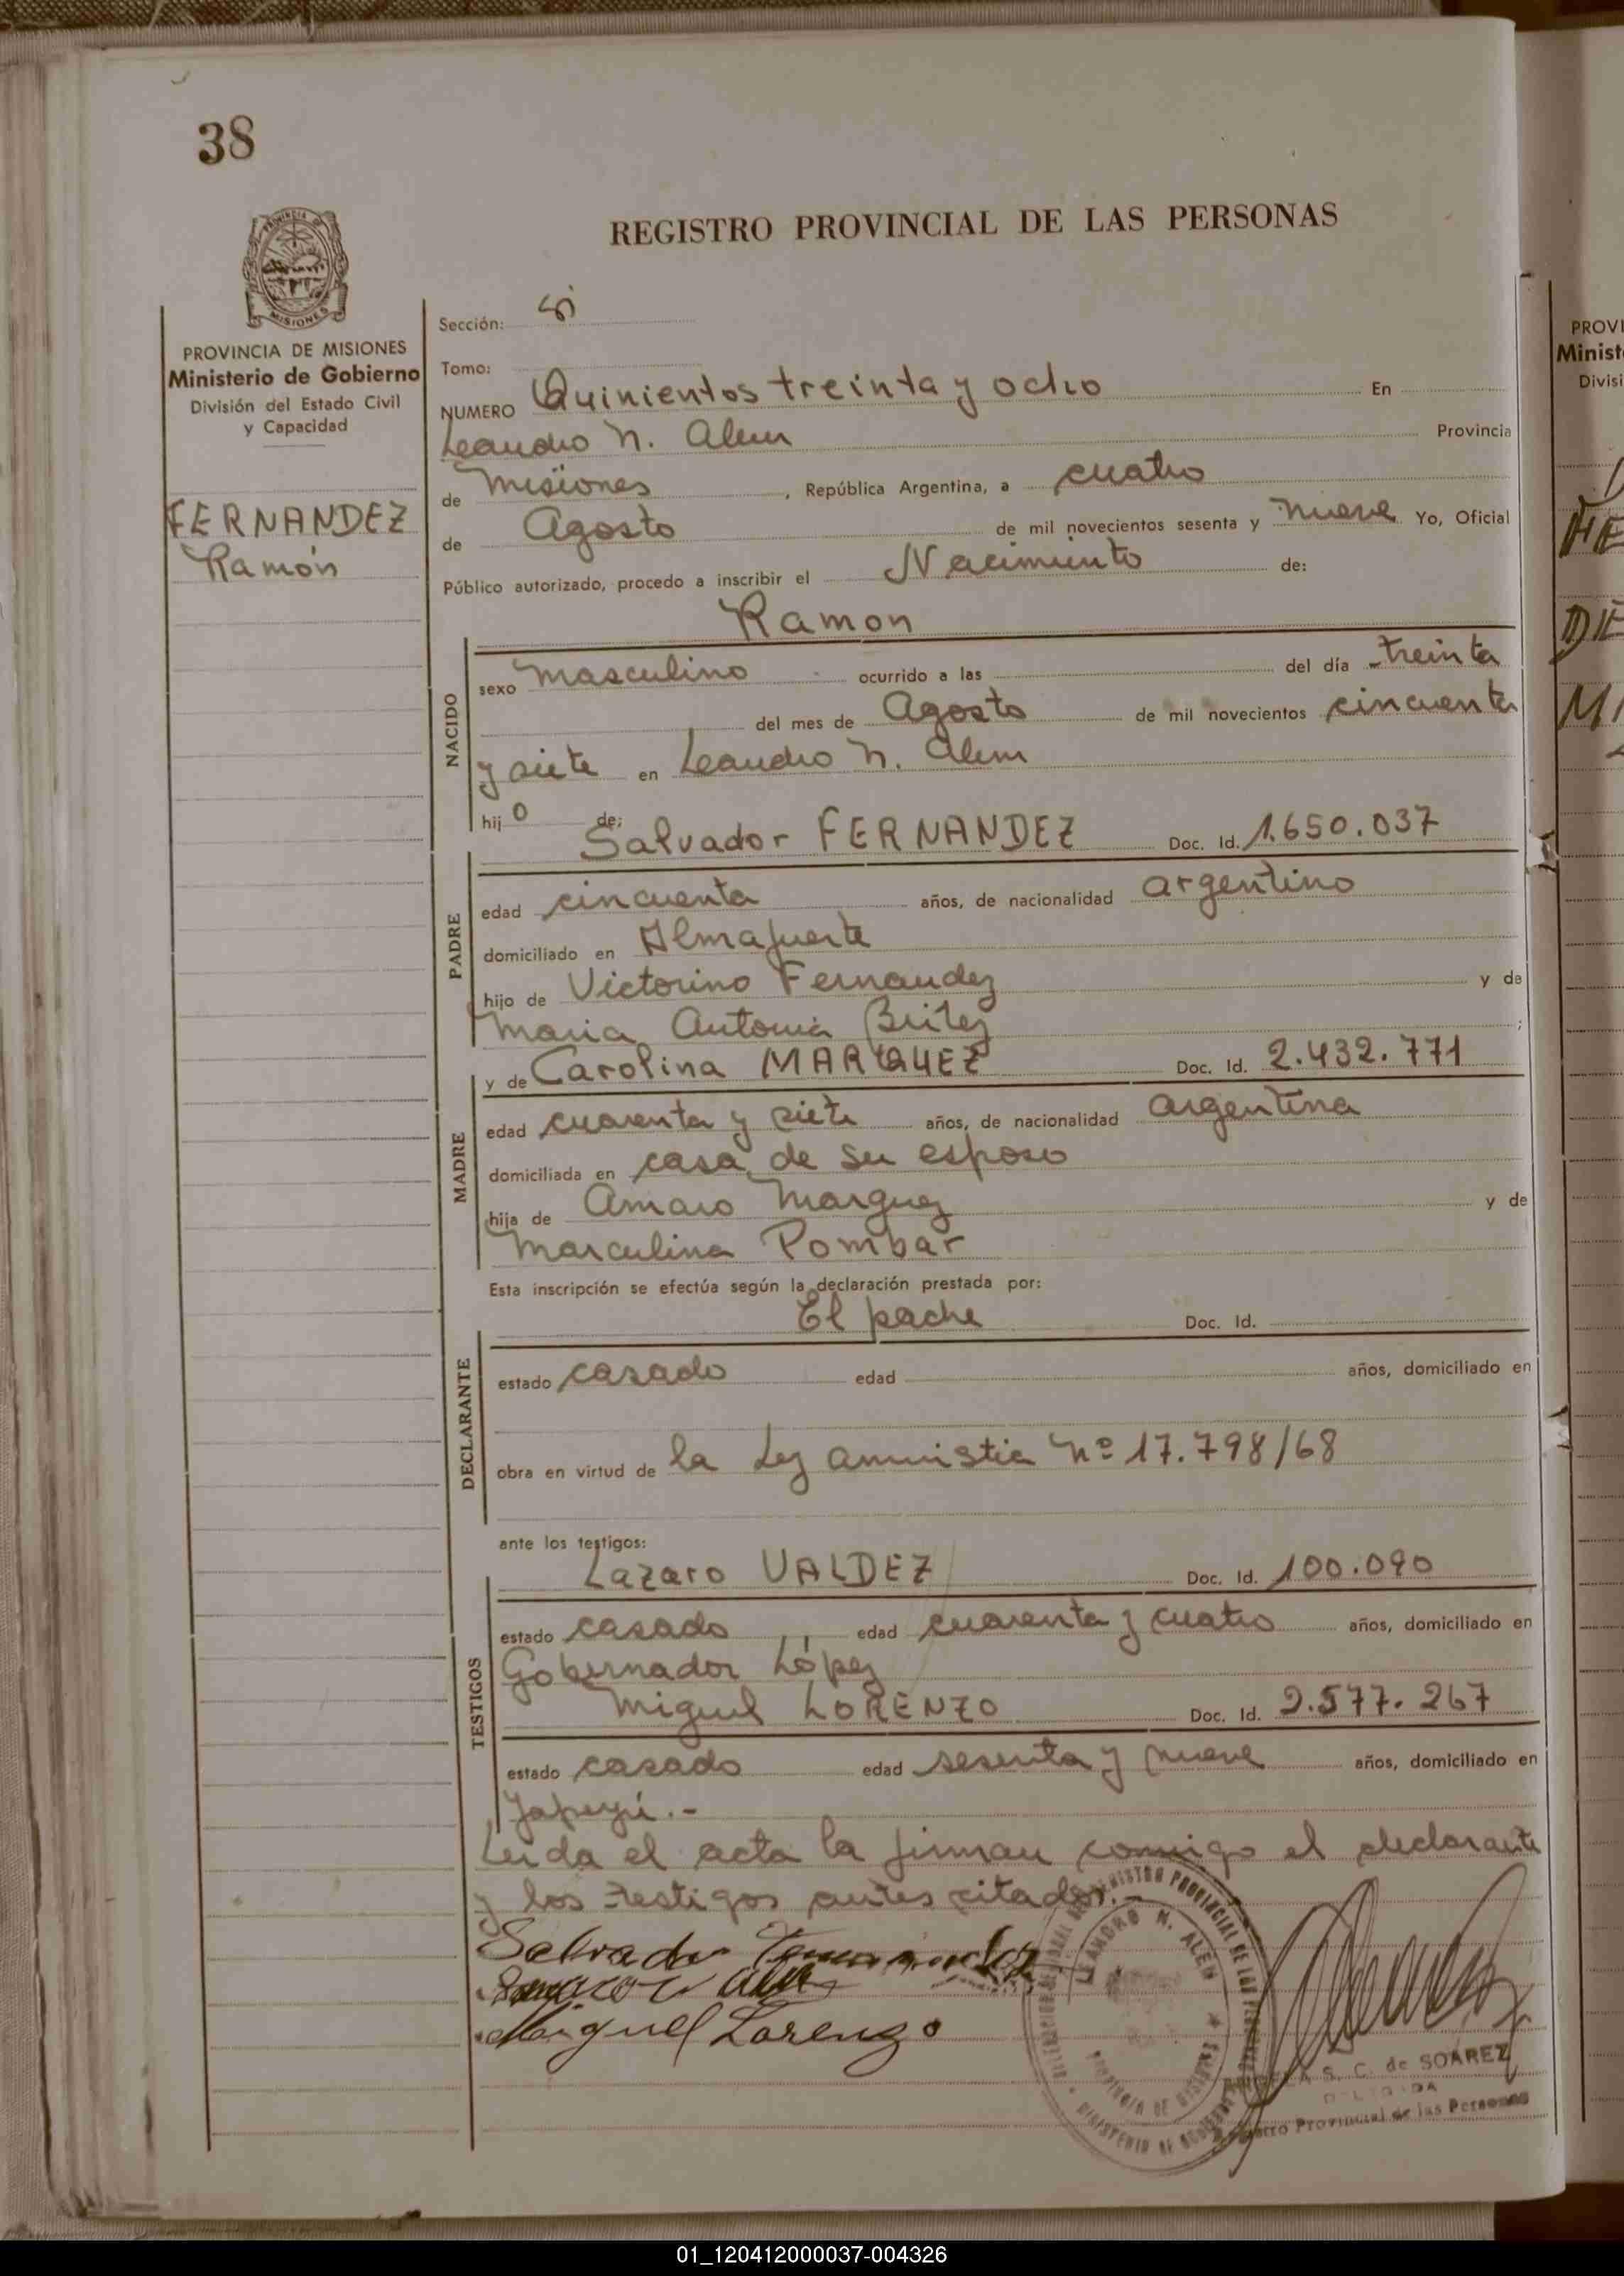 38
REGISTRO PROVINCIAL DE LAS PERSONAS
MISIONES
PROVINCIA DE MISIONES
Ministerio de Gobierno
División del Estado Civil
y Capacidad
FERNANDEZ
Ramón
Sección:
Tomo:
NUMERO Quinientos treinta y ocho En
Leandro N. Alem Provincia
de Misiones, República Argentina, a cuatro
de Agosto de mil novecientos sesenta y nueve Yo, Oficial
Público autorizado, procedo a inscribir el Nacimiento de:
Ramon
NACIDO
sexo masculino ocurrido a las del día treinta
del mes de Agosto de mil novecientos cincuenta
y siete en Leandro N. Alem
hijo de:
Salvador FERNANDEZ Doc. Id. 1.650.037
PADRE
edad cincuenta años, de nacionalidad argentino
domiciliado en Almafuerte
hijo de Victorino Fernandez y de
Maria Antonia Britez ;
y de Carolina MARQUEZ Doc. Id. 2.432.771
MADRE
edad cuarenta y siete años, de nacionalidad argentina
domiciliada en casa de su esposo
hija de Amaro Marquez y de
Marculina Pombar
Esta inscripción se efectúa según la declaración prestada por:
El padre Doc. Id.
DECLARANTE
estado casado edad años, domiciliado en
obra en virtud de la Ley amnistia Nº 17.798/68
ante los testigos:
Lazaro VALDEZ Doc. Id. 100.090
TESTIGOS
estado casado edad cuarenta y cuatro años, domiciliado en
Gobernador López
Miguel LORENZO Doc. Id. 2.577.267
estado casado edad sesenta y nueve años, domiciliado en
Yapeyú.-
Leida el acta la firman conmigo el declarante
y los testigos antes citados.-
Salvador
Miguel Lorenzo
LEANDRO N. ALEM
PROVINCIA DE MISIONES
S. C. de SOAREZ
DELEGADA
Registro Provincial de las Personas
PROVI
Minist
Divisi
01_120412000037-004326